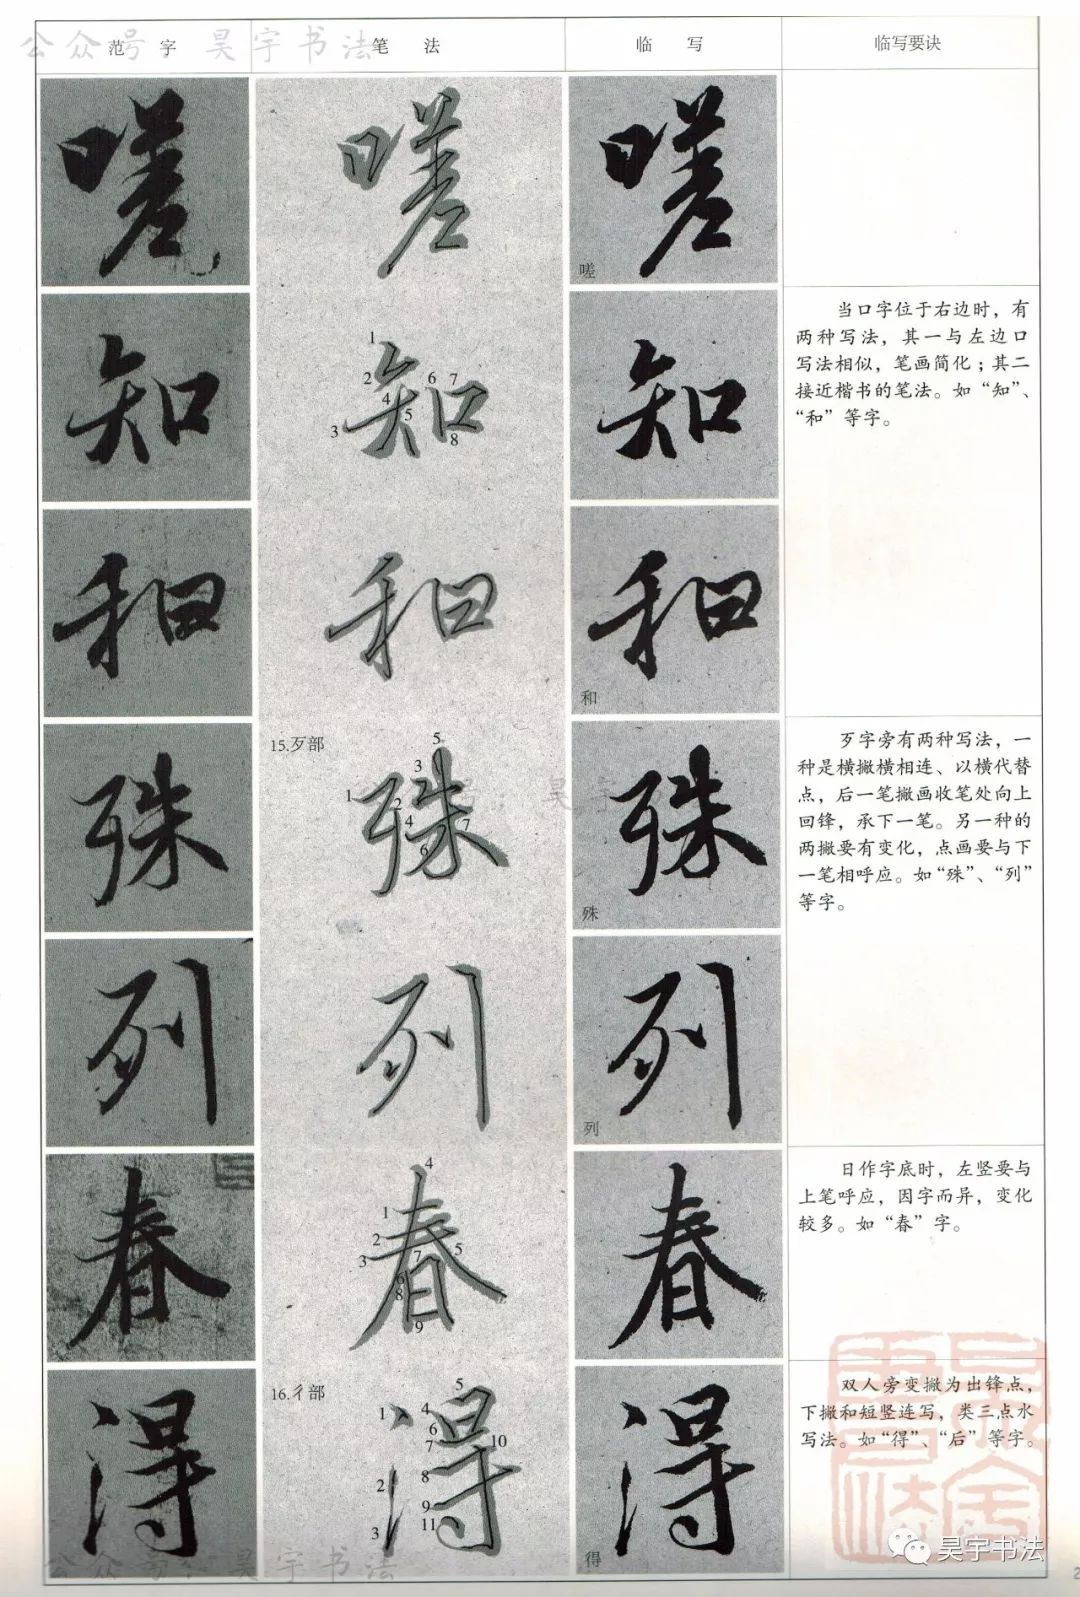 公众号：昊宇书法
范 字
笔 法
临 写
临写要诀
嗟
嗟
嗟
嗟
知
1
2
3
4
5
6
7
8
知
知
当口字位于右边时，有
两种写法，其一与左边口
写法相似，笔画简化；其二
接近楷书的笔法。如“知”、
“和”等字。
和
和
和
和
15.歹部
殊
1
2
3
4
5
6
7
殊
殊
殊
歹字旁有两种写法，一
种是横撇横相连、以横代替
点，后一笔撇画收笔处向上
回锋，承下一笔。另一种的
两撇要有变化，点画要与下
一笔相呼应。如“殊”、“列”
等字。
列
列
列
列
春
1
2
3
4
5
6
7
8
9
春
春
日作字底时，左竖要与
上笔呼应，因字而异，变化
较多。如“春”字。
16.彳部
得
1
2
3
4
5
6
7
8
9
10
11
得
得
得
双人旁变撇为出锋点，
下撇和短竖连写，类三点水
写法。如“得”、“后”等字。
公众号：昊宇书法
昊宇书法